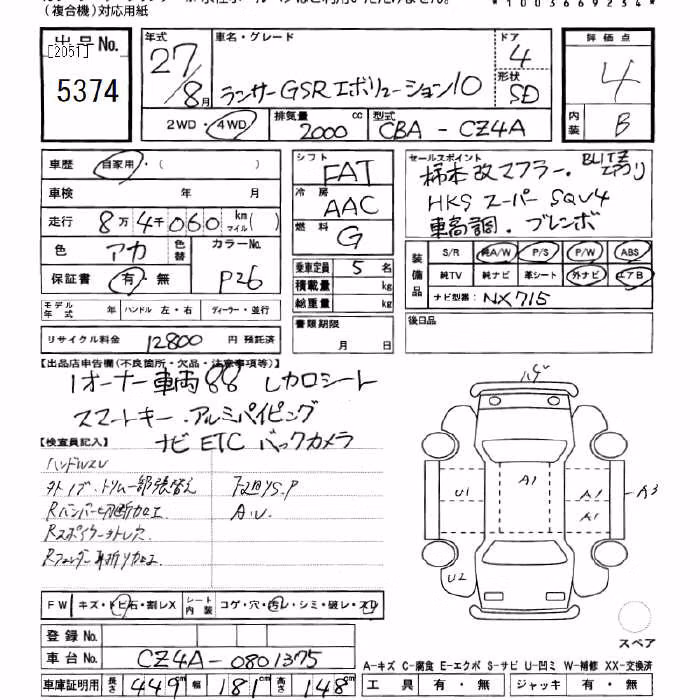 (複合機)対応用紙
*1003669234*
出品No.
[2051]
5374
年式
27/8月
車名・グレード
ランサー GSR エボリューション10
ドア
4
形状
SD
2WD・4WD
排気量
2000 cc
型式
CBA - CZ4A
評価点
4
内装
B
車歴
自家用・( )
車検 年 月
走行
8万4千060 km マイル( )
色
アカ
色替
カラーNo.
P26
保証書
有・無
モデル年式 年
ハンドル 左・右
ディーラー・並行
リサイクル料金
12800 円 預託済
シフト
FAT
冷房
AAC
燃料
G
乗車定員 5 名
積載量 kg
総重量 kg
書類期限
月 日
セールスポイント
柿本改マフラー. BLITZ エアクリ
HKS スーパー SQV4
車高調. ブレンボ
装備品
S/R 純A/W P/S P/W ABS
純TV 純ナビ 革シート 外ナビ エアB
ナビ型番: NX715
後日品
【出品店申告欄(不良箇所・欠品・注意事項等)】
1オーナー車両 レカロシート
スマートキー. アルミパイピング
ナビ ETC バックカメラ
【検査員記入】
ハンドルスレ
内トリム一部張替え
Rバンパー切断加工
A.U.
Rスポイラー
Rフェンダー折り加工
FW キズ・トビ石・割レX
シート内装 コゲ・穴・汚レ・シミ・破レ・スレ
登録No.
車台No.
CZ4A-0801375
車庫証明用 長さ 449 cm 幅 181 cm 高さ 148 cm
U1
A1
A1
A1
A3
U2
スペア
A-キズ C-腐食 E-エクボ S-サビ U-凹ミ W-補修 XX-交換済
工具 有・無 ジャッキ 有・無